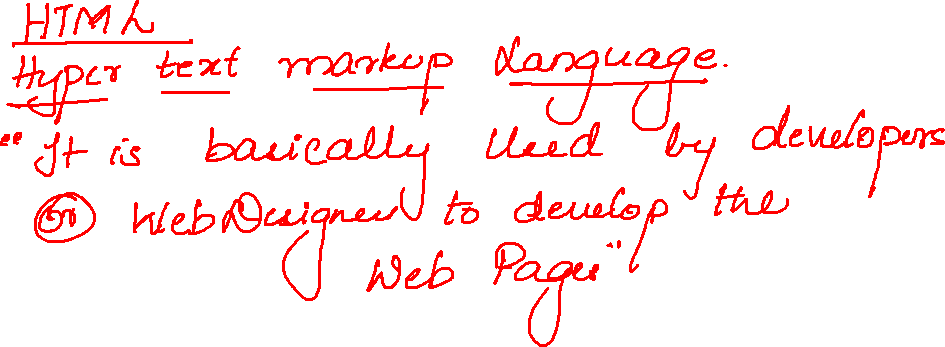 HTML
Hyper text markup Language.
"It is basically Used by developers
(or) WebDesigners to develop the
Web Pages"